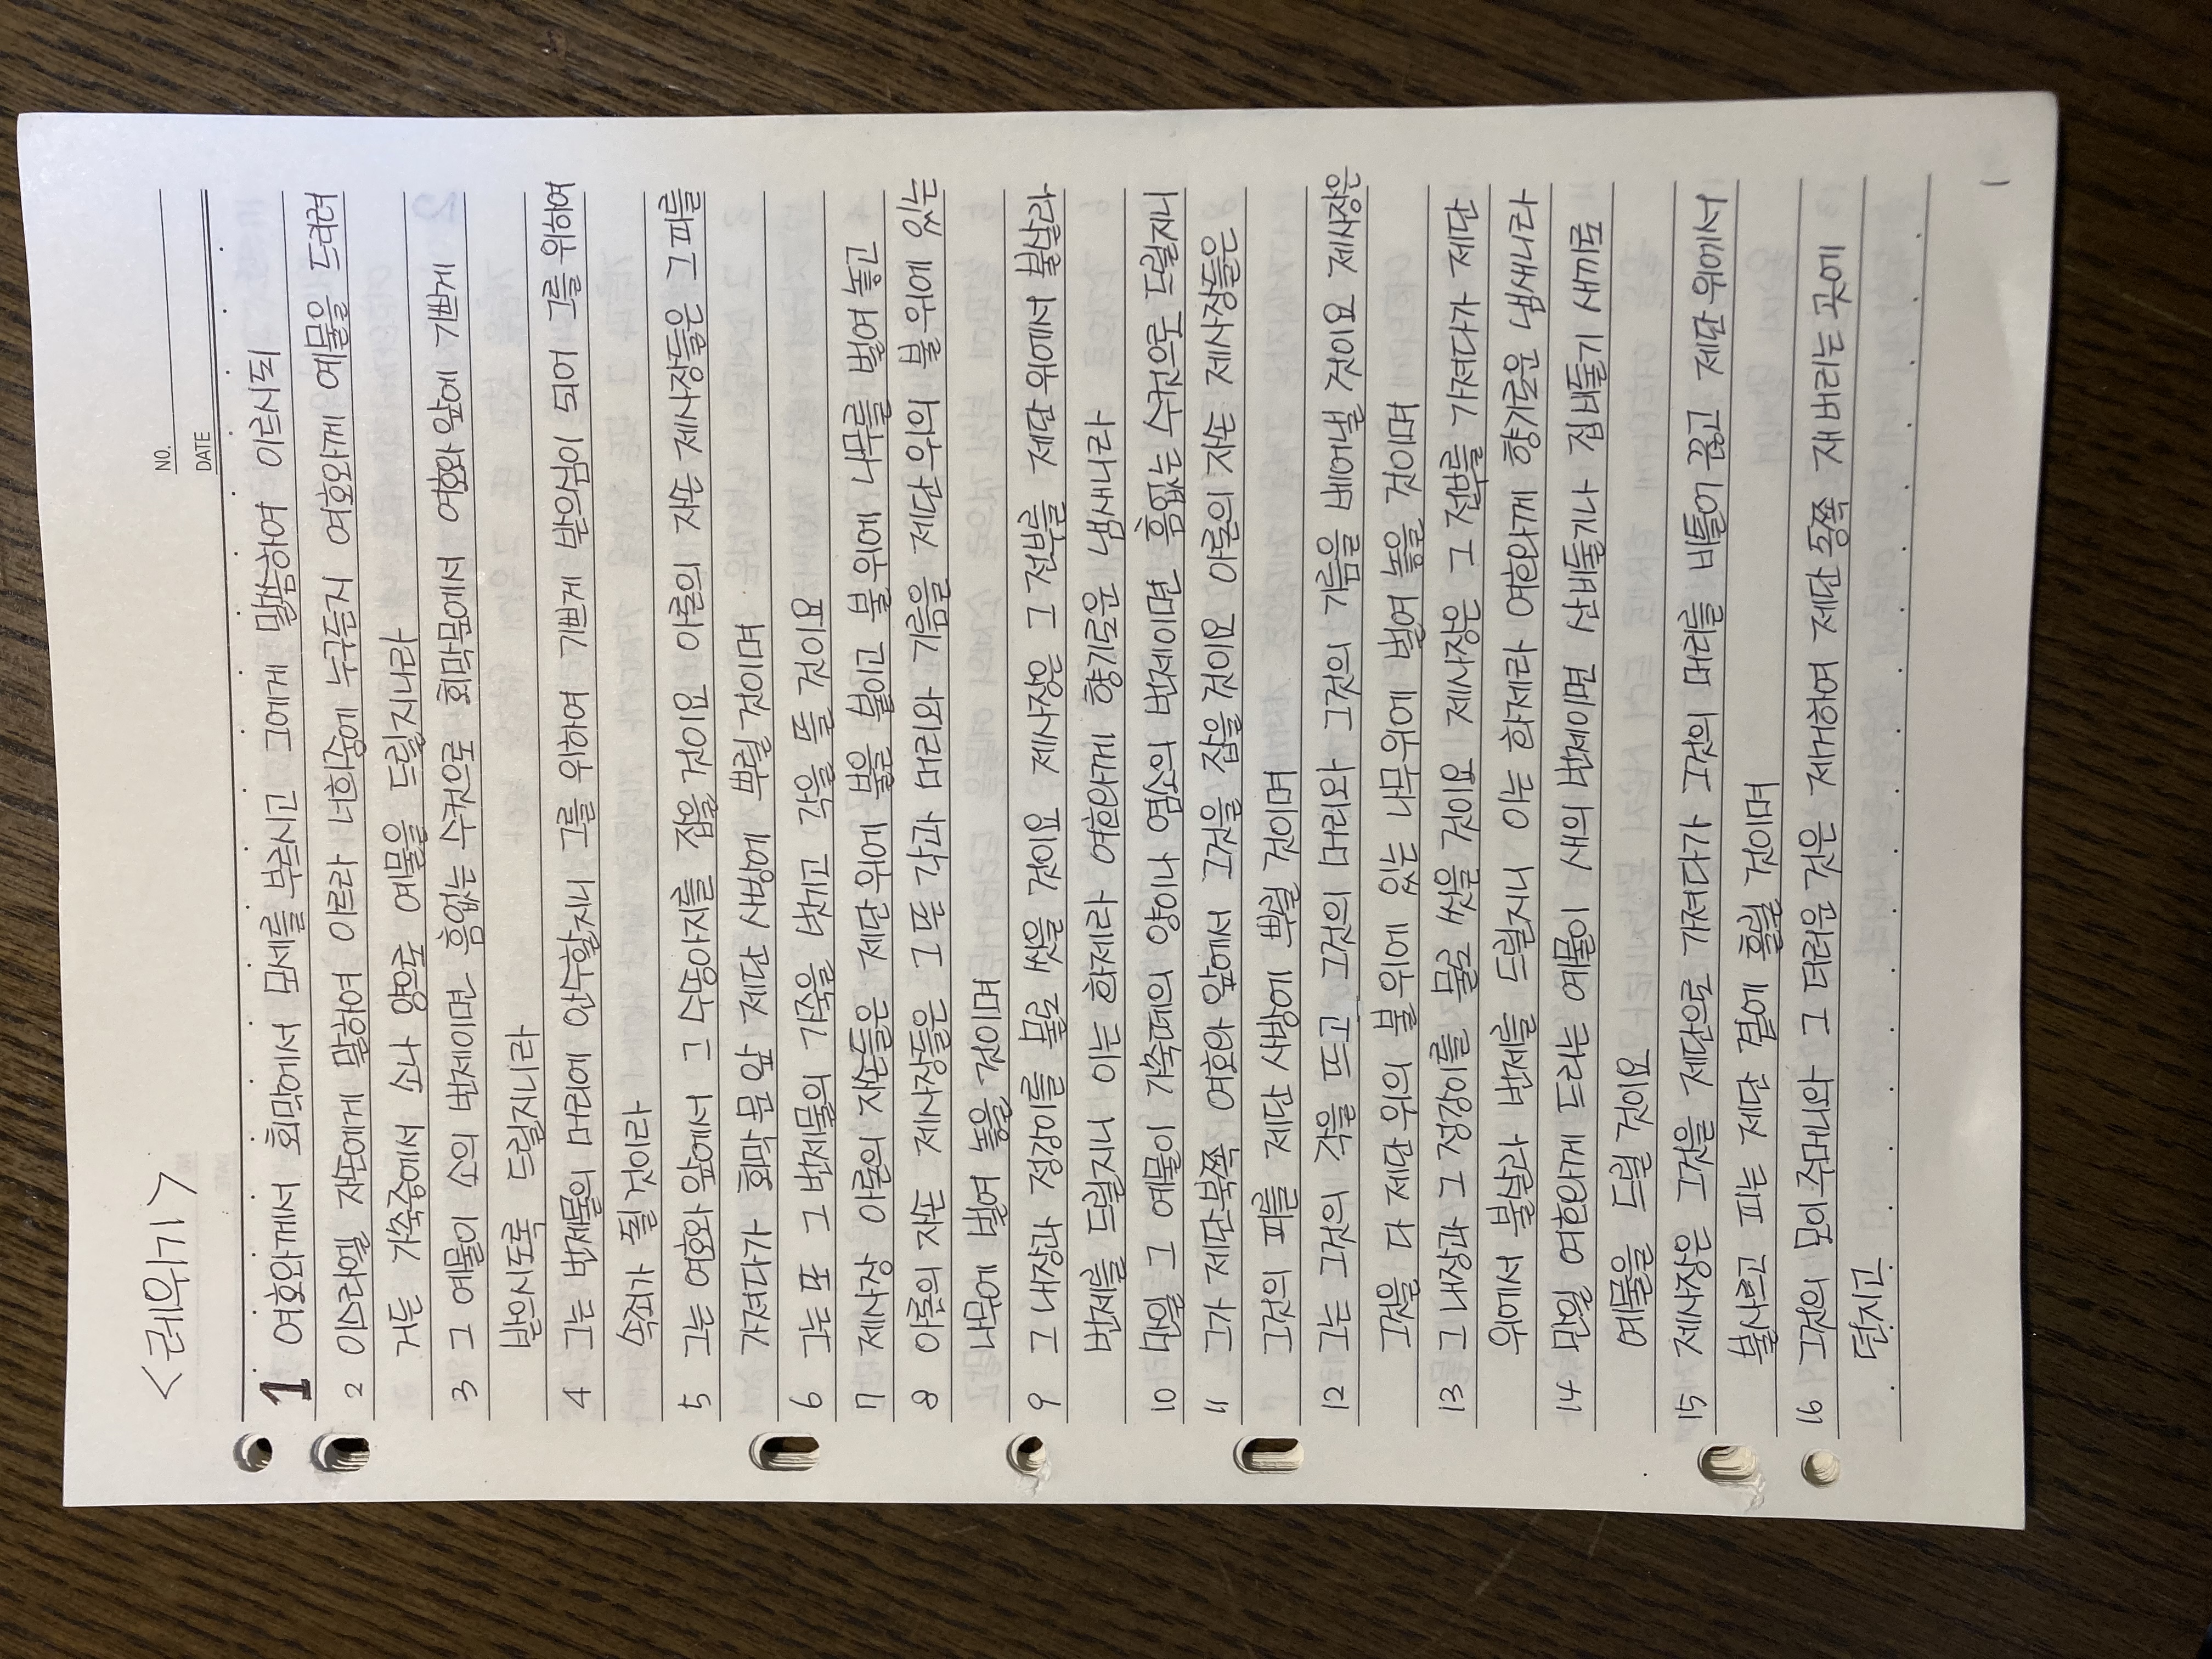 <레위기>
NO.
DATE
1 여호와께서 회막에서 모세를 부르시고 그에게 말씀하여 이르시되
2 이스라엘 자손에게 말하여 이르라 너희중에 누구든지 여호와께 예물을 드리려
거든 가축중에서 소나 양으로 예물을 드릴지니라
3 그 예물이 소의 번제이면 흠없는 수컷으로 회막문에서 여호와 앞에 기쁘게
받으시도록 드릴지니라
4 그는 번제물의 머리에 안수할지니 그를 위하여 기쁘게 받으심이 되어 그를 위하여
속죄가 될 것이라
5 그는 여호와 앞에서 그 수송아지를 잡을 것이요 아론의 자손 제사장들은 그 피를
가져다가 회막 문 앞 제단 사방에 뿌릴 것이며
6 그는 또 그 번제물의 가죽을 벗기고 각을 뜰 것이요
7 제사장 아론의 자손들은 제단 위에 불을 붙이고 불 위에 나무를 벌여 놓고
8 아론의 자손 제사장들은 그 뜬 각과 머리와 기름을 제단 위의 불 위에 있는
나무에 벌여 놓을 것이며
9 그 내장과 정강이를 물로 씻을 것이요 제사장은 그 전부를 제단 위에서 불살라
번제를 드릴지니 이는 화제라 여호와께 향기로운 냄새니라
10 만일 그 예물이 가축떼의 양이나 염소의 번제이면 흠없는 수컷으로 드릴지니
11 그가 제단 북쪽 여호와 앞에서 그것을 잡을 것이요 아론의 자손 제사장들은
그것의 피를 제단 사방에 뿌릴 것이며
12 그는 그것의 각을 뜨고 그것의 머리와 그것의 기름을 베어낼 것이요 제사장은
그것을 다 제단 위의 불 위에 있는 나무 위에 벌여 놓을 것이며
13 그 내장과 그 정강이를 물로 씻을 것이요 제사장은 그 전부를 가져다가 제단
위에서 불살라 번제를 드릴지니 이는 화제라 여호와께 향기로운 냄새니라
14 만일 여호와께 드리는 예물이 새의 번제이면 산비둘기나 집비둘기 새끼로
예물을 드릴 것이요
15 제사장은 그것을 제단으로 가져다가 그것의 머리를 비틀어 끊고 제단 위에서
불사르고 피는 제단 곁에 흘릴 것이며
16 그것의 모이주머니와 그 더러운 것은 제거하여 제단 동쪽 재 버리는 곳에
던지고
1